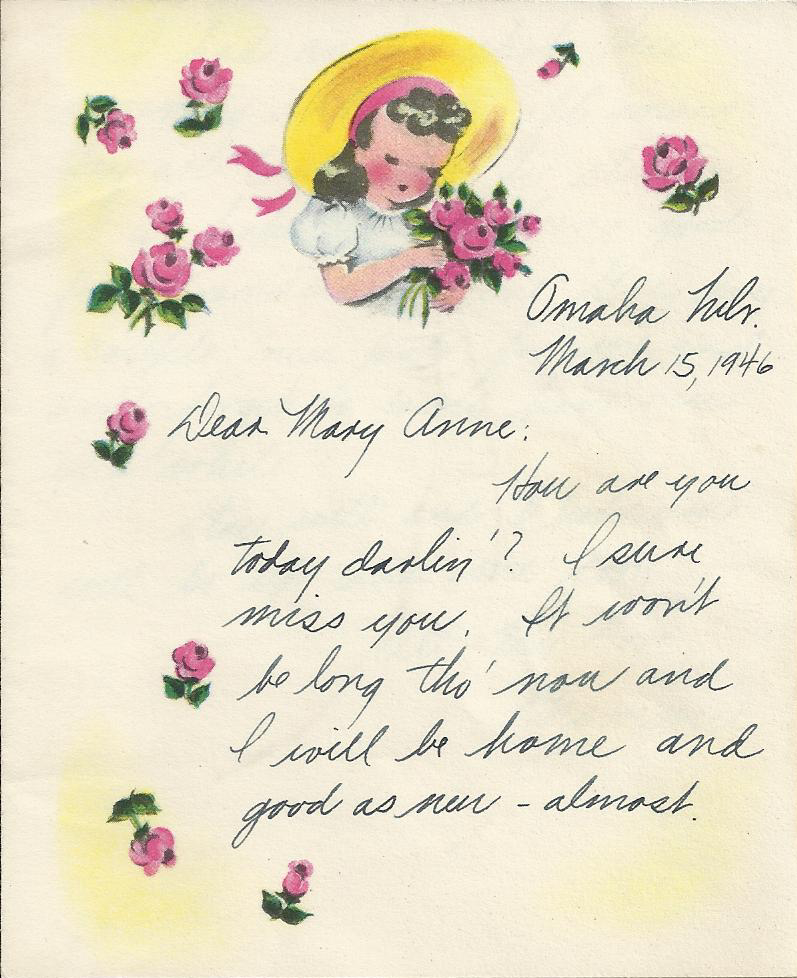 Omaha Nebr.
March 15, 1946
Dear Mary Anne:
How are you
today darlin'? I sure
miss you. It won't
be long tho' now and
I will be home and
good as new - almost.